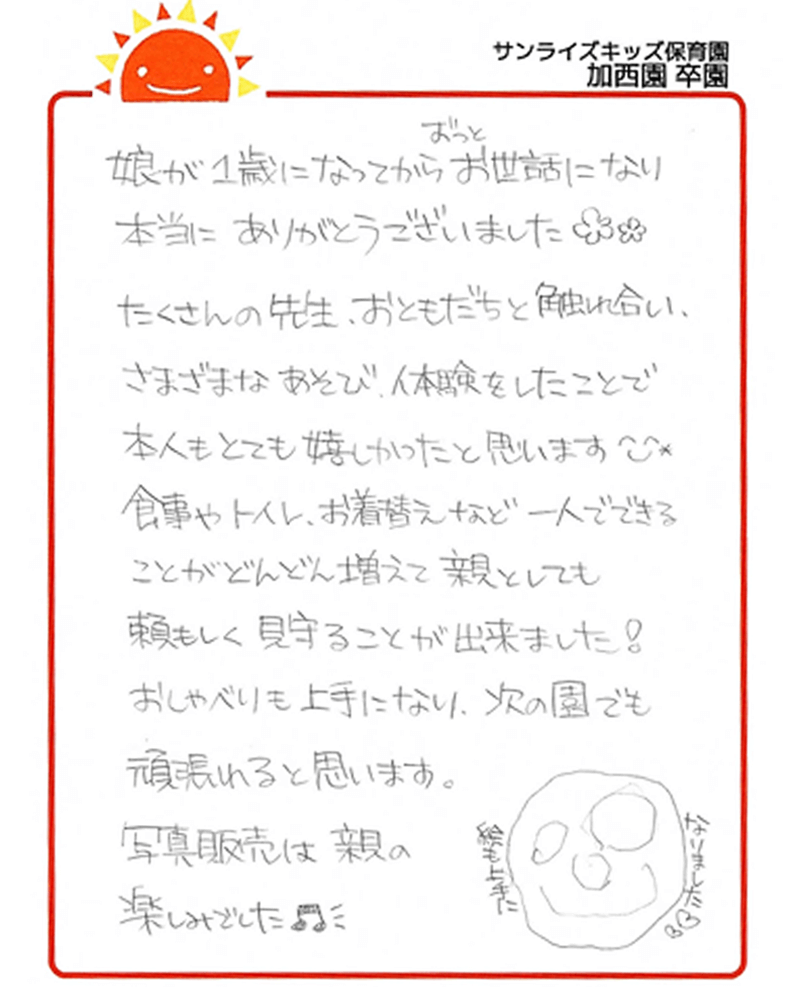 サンライズキッズ保育園
加西園 卒園
ずっと
娘が1歳になってから お世話になり
本当に ありがとうございました
たくさんの先生、おともだちと触れ合い、
さまざまな あそび、体験をしたことで
本人もとても嬉しかったと思います
食事やトイレ、お着替えなど 一人でできる
ことがどんどん増えて 親としても
頼もしく 見守ることが出来ました!
おしゃべりも上手になり、次の園でも
頑張れると思います。
写真販売は 親の
楽しみでした♫
絵も上手に
なりました